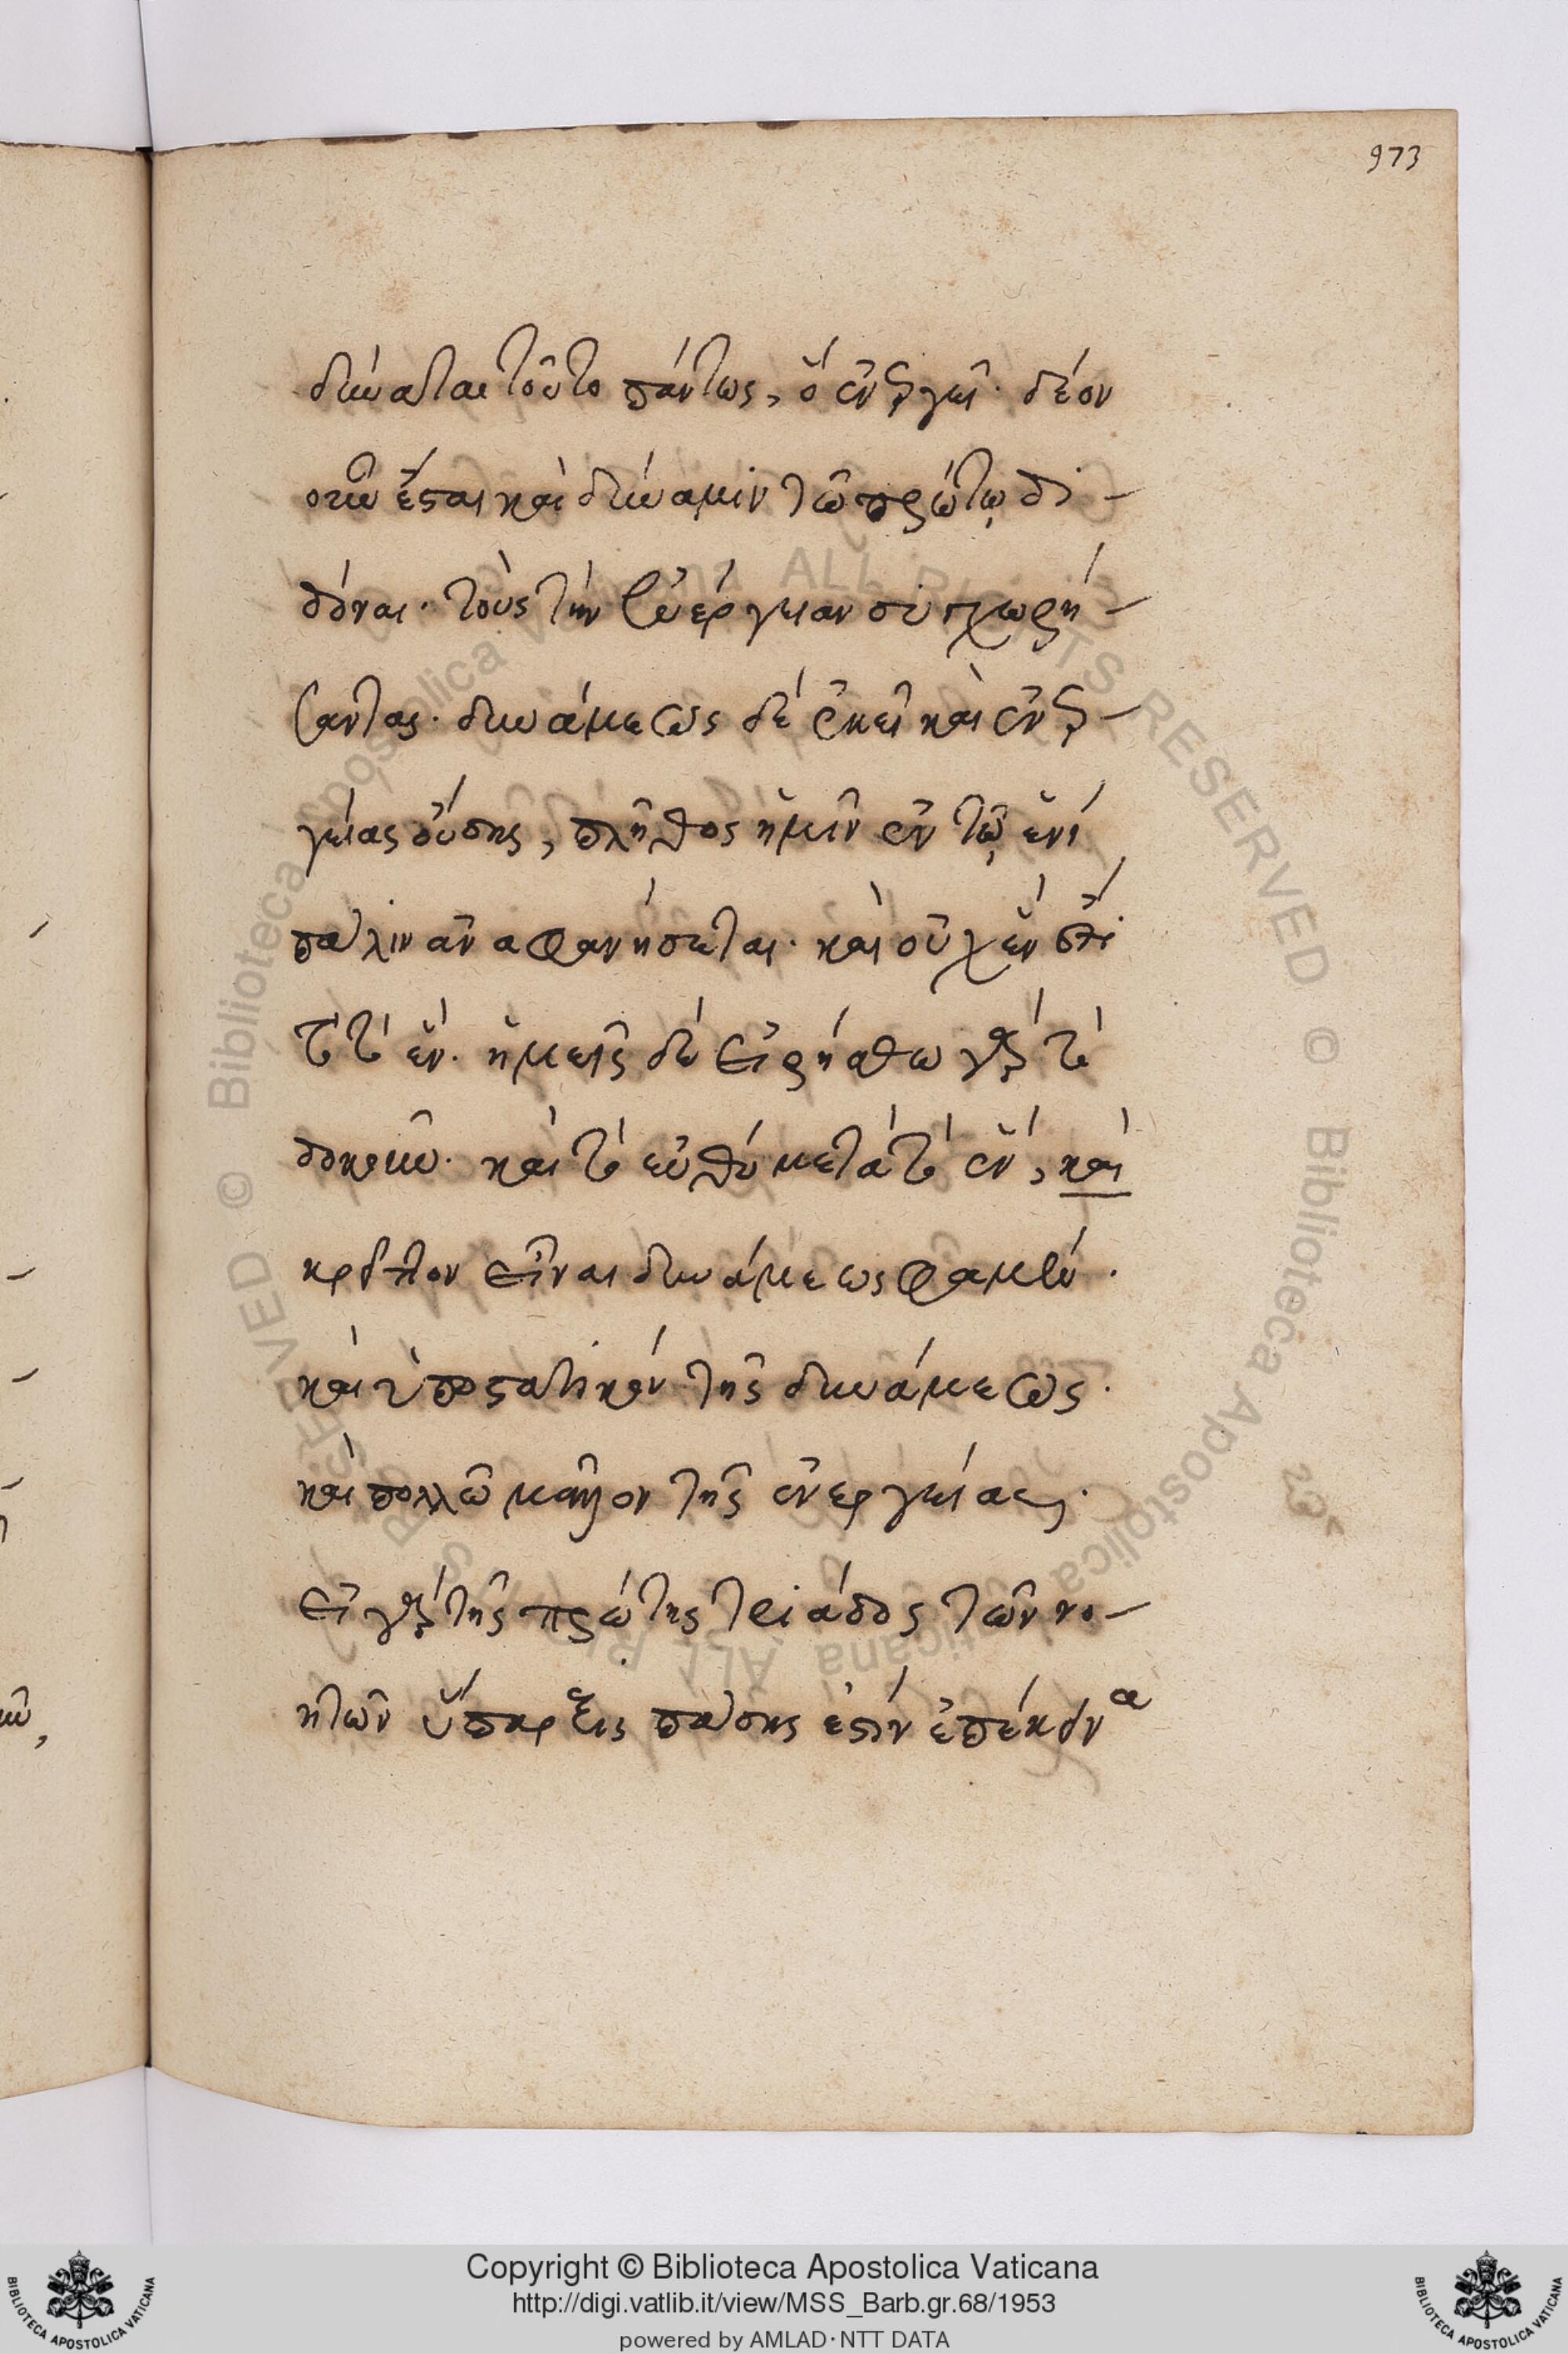 973
δύναται τοῦτο πάντως, ὃ ἐνεργεῖ. δέον
οὖν ἔσται καὶ δύναμιν τῷ πρώτῳ δι-
δόναι. τοὺς τὴν ἐνέργειαν συγχωρή-
σαντας. δυνάμεως δὲ ἐκεῖ καὶ ἐνερ-
γείας οὔσης, πλῆθος ἡμῖν ἐν τῷ ἑνὶ
πάλιν ἀναφανήσεται. καὶ οὐχ ἕν ἐστι
τὸ τὸ ἕν. ἡμεῖς δὲ εἰρήσθω γὰρ τὸ
δοκοῦν. καὶ τὸ εὐθὺ μετὰ τὸ ἕν, καὶ
κρεῖττον εἶναι δυνάμεως φαμὲν.
καὶ ὑποστατικὸν τῆς δυνάμεως.
καὶ πολλῷ μᾶλλον τῆς ἐνεργείας.
εἰ γὰρ τῆς πρώτης τριάδος τῶν νο-
ητῶν ὕπαρξις πάσης ἐστὶν ἐπέκεινα
Copyright © Biblioteca Apostolica Vaticana
http://digi.vatlib.it/view/MSS_Barb.gr.68/1953
powered by AMLAD·NTT DATA